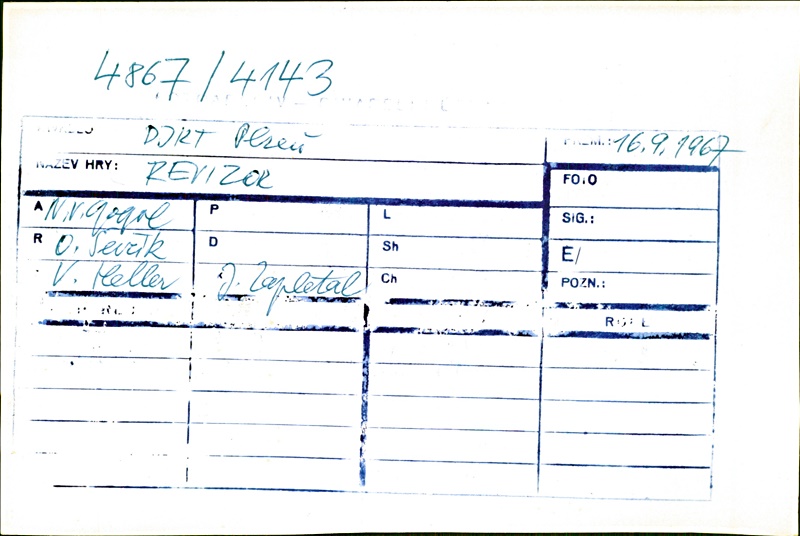 4867/4143
DJKT Plzeň PREM.: 16.9.1967
NÁZEV HRY: REVIZOR FOTO
A N.V. Gogol P L SIG.:
R O. Ševčík D Sh E/
V. Heller J. Zapletal Ch POZN.: